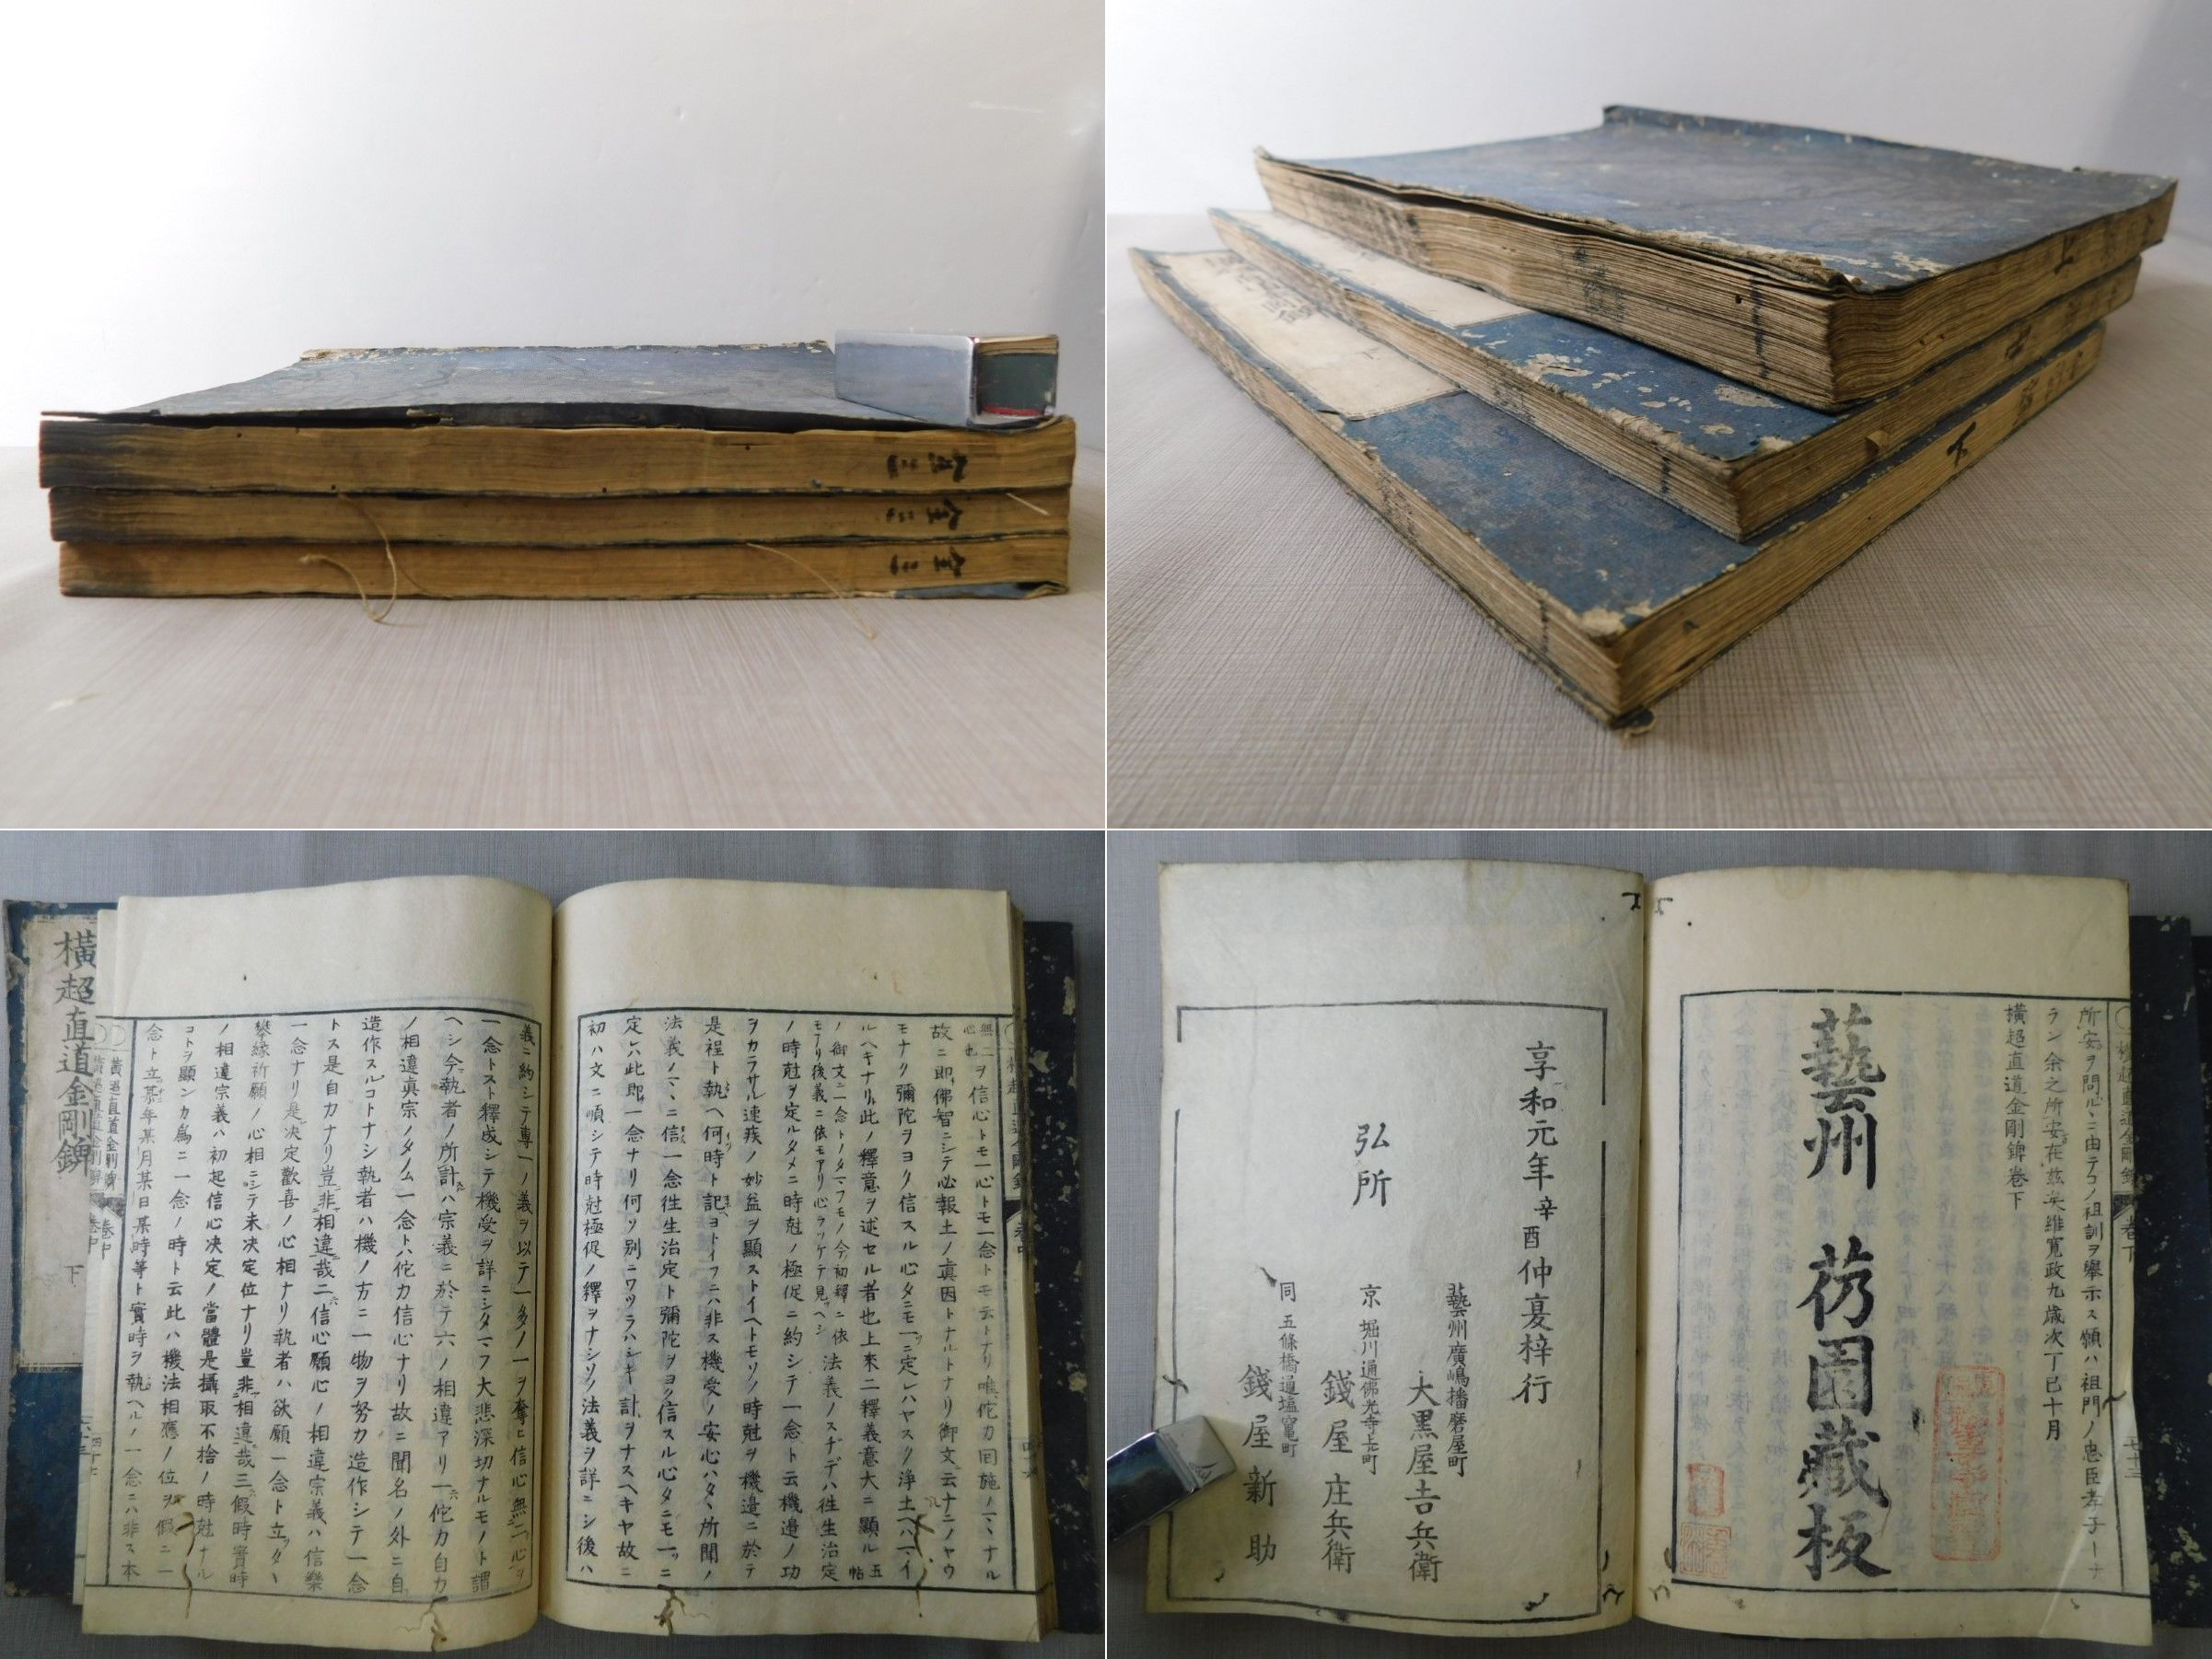 上
中
下
全三
全三
全三
横超直道金剛錍
下
無二ヲ信心トモ一心トモ一念トモ云トナリ唯佗力回施ノ一ニナル
心也
故ニ即佛智ニシテ必報土ノ真因トナルトナリ御文云十ニノヤウ
モナク彌陀ヲヨク信スル心タニモ一ニ定レハヤスク浄土ヘハマイ
ルヘキナリ此ノ釋意ヲ述セル者也上來二釋義意大ニ顯ル五帖
ノ御文ニ一念トノタマフモノ今初釋ニ依
モアリ後義ニ依モアリ心ヲツケテ見ヘシ
法義ノスヂデハ往生治定
ノ時尅ヲ定ルタメニ時尅ノ極促ニ約シテ一念ト云機邉ノ功
ヲカラサル速疾ノ妙益ヲ顯ストイヘトモソノ時尅ヲ機邉ニ於テ
是程ト執ヘ何時ト記ヨトイフニハ非ス機受ノ安心ハタヽ所聞ノ
法義ノマヽニ信一念往生治定ト彌陀ヲヨク信スル心タニモ一ツニ
定レハ此即一念ナリ何ソ別ニワツラハシキ計ヲナスヘキヤ故ニ
初ハ文ニ順シテ時尅極促ノ釋ヲナシソノ法義ヲ詳ニシ後ハ
義ニ約シテ專一ノ義ヲ以テ一多ノ一ヲ奪ヒ信心無二心ヲ
一念トスト釋成シテ機受ヲ詳ニシタマフ大悲深切ナルモノト謂
ヘシ今執者ノ所計ハ宗義ニ於テ六ノ相違アリ一佗力自力
ノ相違真宗ノタノム一念トハ佗力信心ナリ故ニ聞名ノ外ニ自
造作スルコトナシ執者ハ機ノ方ニ一物ヲ努力造作シテ一念
トス是自力ナリ豈非相違哉二信心願心ノ相違宗義ハ信樂
一念ナリ是決定歡喜ノ心相ナリ執者ハ欲願一念ト立ツタヽ
攀縁祈願ノ心相ニシテ未決定位ナリ豈非相違哉三假時實時
ノ相違宗義ハ初起信心決定ノ當體是攝取不捨ノ時尅ナル
コトヲ顯ンカ爲ニ一念ノ時ト云此ハ機法相應ノ位ヲ假ニ一
念ト立某年某月某日某時等ト實時ヲ執ヘルノ一念ニハ非ス本
横超直道金剛錍
卷中
所安ヲ問ルニ由テコノ祖訓ヲ擧示ス願ハ祖門ノ忠臣孝子一ナ
ラン余之所安在茲矣維寛政九歳次丁巳十月
横超直道金剛錍卷下
卷下
七十三
藝州 芿園藏板
享和元年辛酉仲夏梓行
弘所
藝州廣嶋播磨屋町
大黒屋吉兵衛
京 堀川通佛光寺上町
錢屋庄兵衛
同 五條橋通塩竃町
錢屋新助